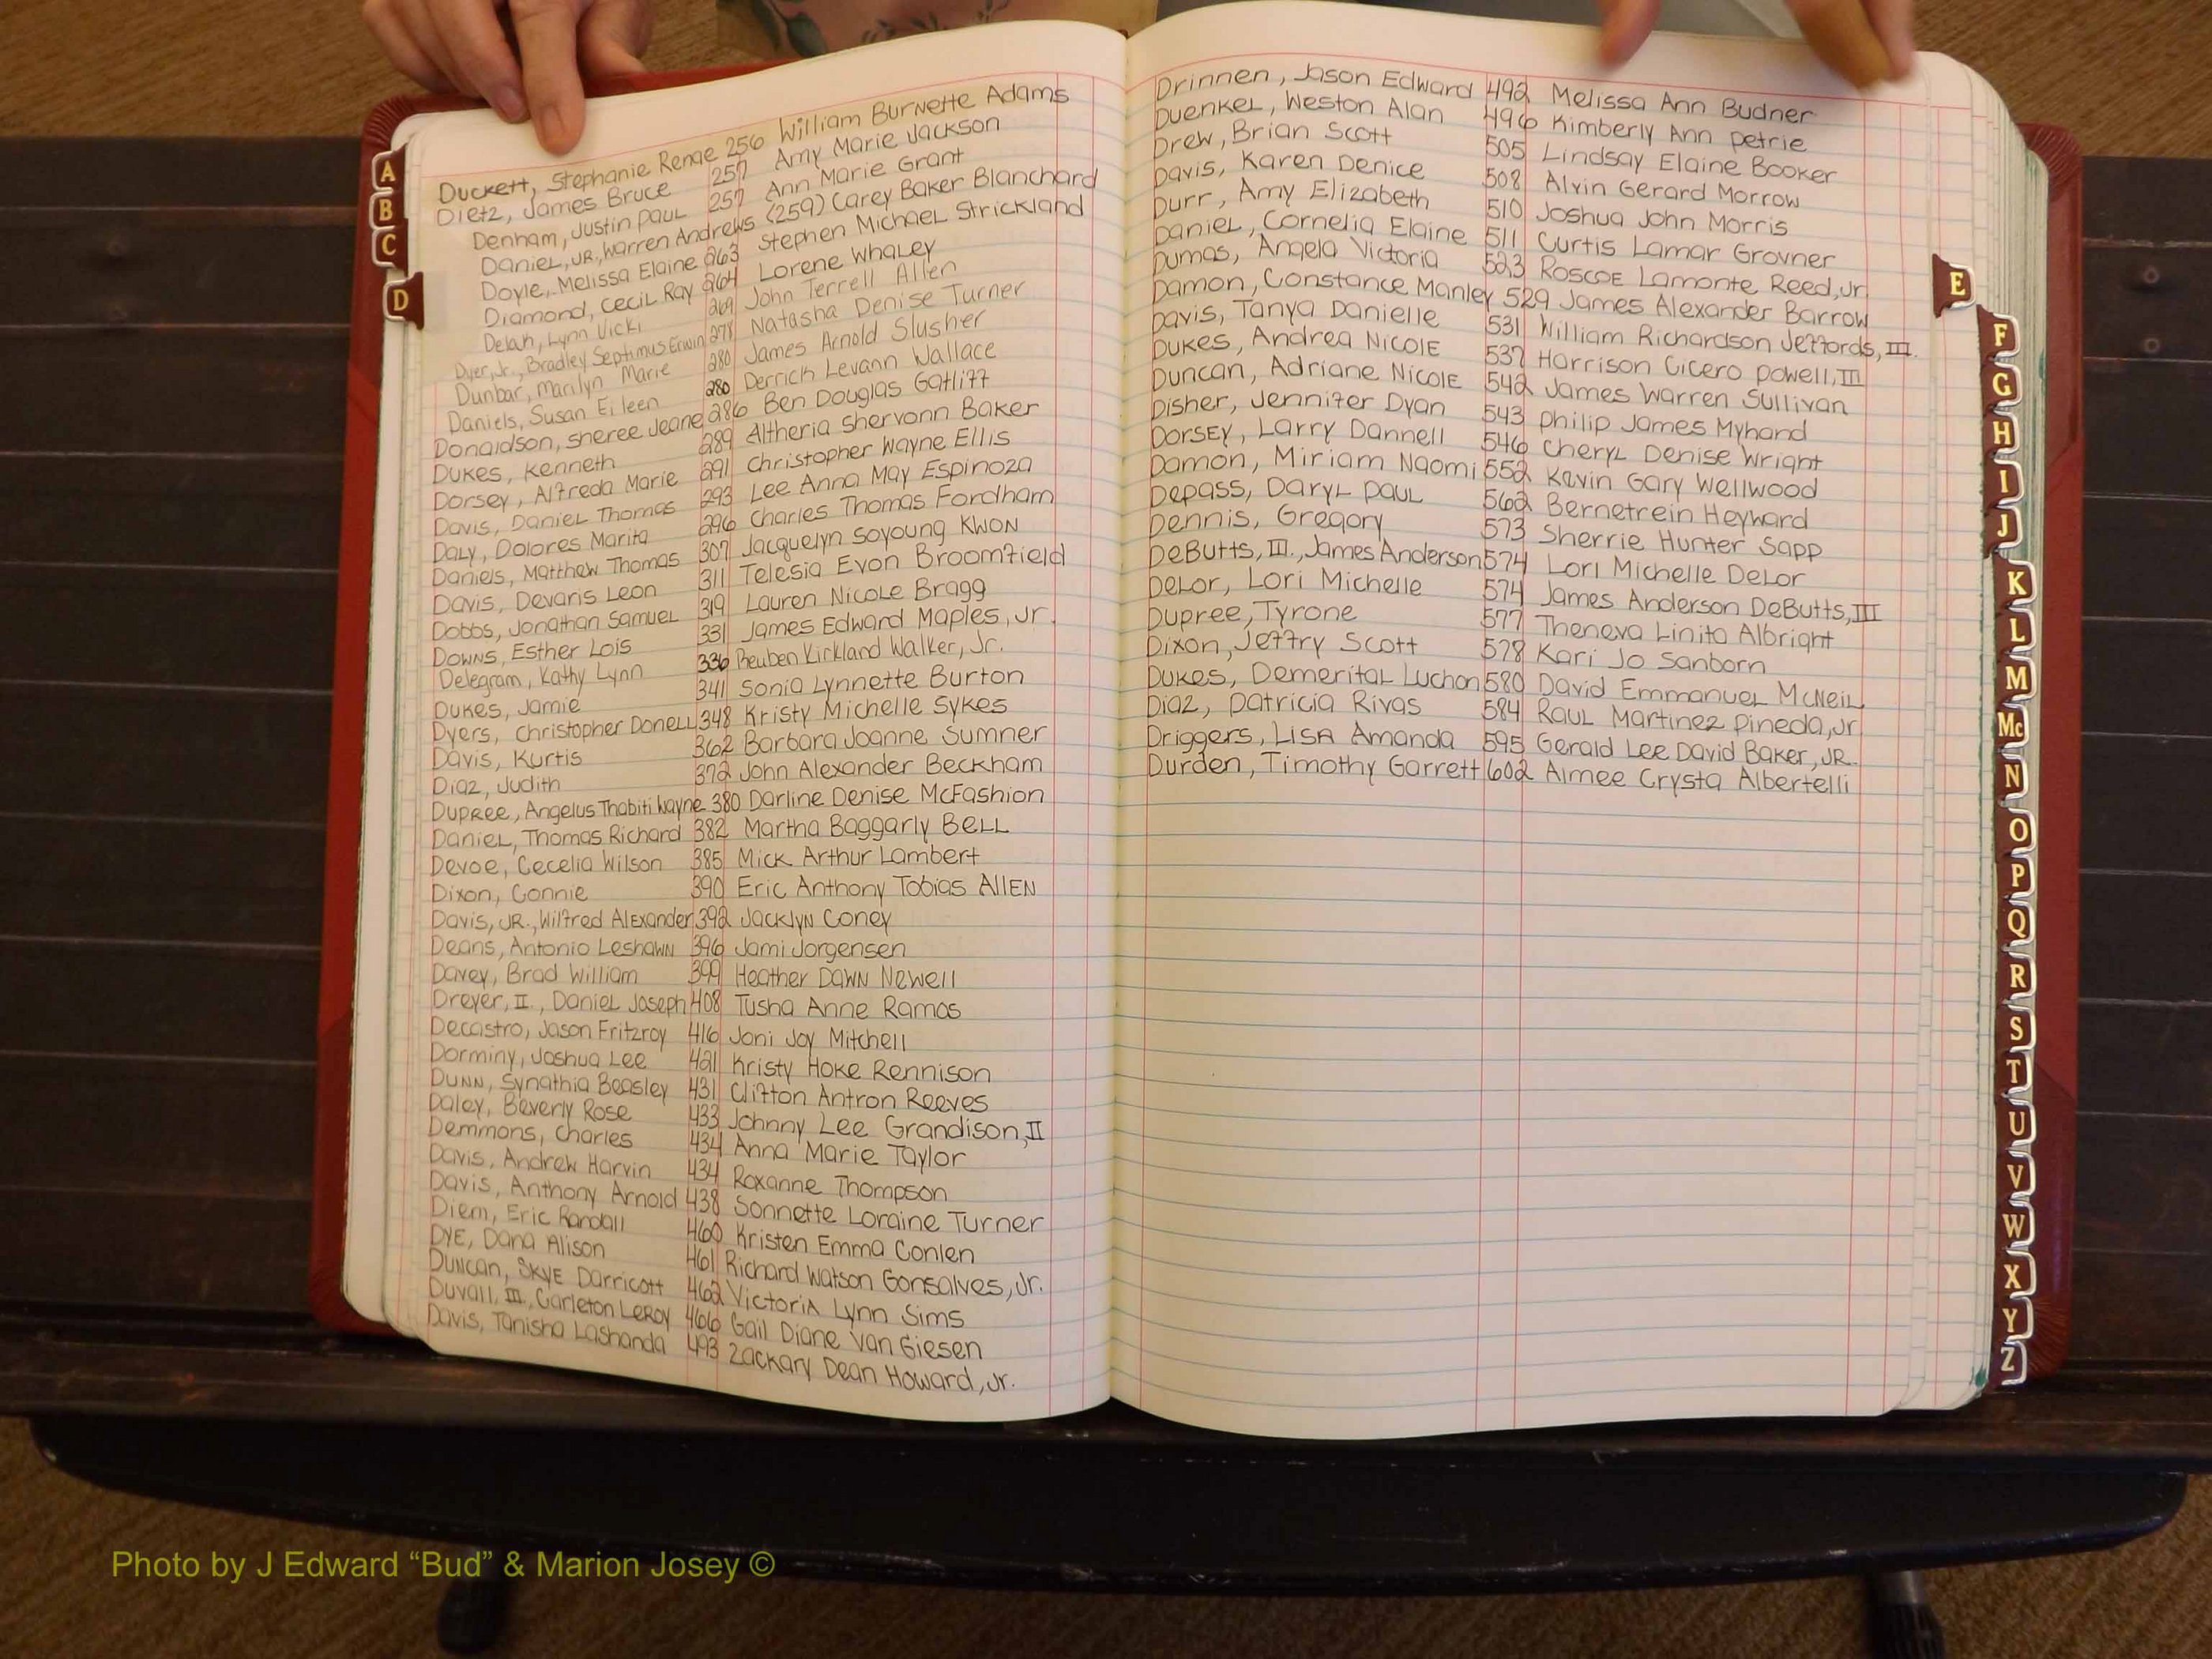 Duckett, Stephanie Renae 256 William Burnette Adams
Dietz, James Bruce 257 Amy Marie Jackson
Denham, Justin Paul 257 Ann Marie Grant
Daniel, JR., Warren Andrews (259) Carey Baker Blanchard
Doyle, Melissa Elaine 263 Stephen Michael Strickland
Diamond, Cecil Ray 264 Lorene Whaley
Delah, Lynn Vicki 269 John Terrell Allen
Dyer, Jr., Bradley Septimus Erwin 278 Natasha Denise Turner
Dunbar, Marilyn Marie 280 James Arnold Slusher
Daniels, Susan Eileen 280 Derrick Levann Wallace
Donaldson, Sheree Jeane 286 Ben Douglas Gatliff
Dukes, Kenneth 289 Altheria Shervonn Baker
Dorsey, Alfreda Marie 291 Christopher Wayne Ellis
Davis, Daniel Thomas 293 Lee Anna May Espinoza
Daly, Dolores Marita 296 Charles Thomas Fordham
Daniels, Matthew Thomas 307 Jacquelyn Soyoung Kwon
Davis, Devaris Leon 311 Telesia Evon Broomfield
Dobbs, Jonathan Samuel 319 Lauren Nicole Bragg
Downs, Esther Lois 331 James Edward Maples, Jr.
Delegram, Kathy Lynn 336 Reuben Kirkland Walker, Jr.
Dukes, Jamie 341 Sonia Lynnette Burton
Dyers, Christopher Donell 348 Kristy Michelle Sykes
Davis, Kurtis 362 Barbara Joanne Sumner
Diaz, Judith 372 John Alexander Beckham
Dupree, Angelus Thabiti Wayne 380 Darline Denise McFashion
Daniel, Thomas Richard 382 Martha Baggarly Bell
Devoe, Cecelia Wilson 385 Mick Arthur Lambert
Dixon, Connie 390 Eric Anthony Tobias Allen
Davis, JR., Wilfred Alexander 392 Jacklyn Coney
Deans, Antonio Leshawn 396 Jami Jorgensen
Davey, Brad William 399 Heather Dawn Newell
Dreyer, II., Daniel Joseph 408 Tusha Anne Ramos
Decastro, Jason Fritzroy 416 Joni Joy Mitchell
Dorminy, Joshua Lee 421 Kristy Hoke Rennison
Dunn, Synathia Beasley 431 Clifton Antron Reeves
Daley, Beverly Rose 433 Johnny Lee Grandison, II
Demmons, Charles 434 Anna Marie Taylor
Davis, Andrew Harvin 434 Roxanne Thompson
Davis, Anthony Arnold 438 Sonnette Loraine Turner
Diem, Eric Randall 460 Kristen Emma Conlen
Dye, Dana Alison 461 Richard Watson Gonsalves, Jr.
Duncan, Skye Darricott 462 Victoria Lynn Sims
Duvall, III., Carleton LeRoy 466 Gail Diane Van Giesen
Davis, Tanisha Lashanda 493 Zackary Dean Howard, Jr.
Drinnen, Jason Edward 492 Melissa Ann Budner
Duenkel, Weston Alan 496 Kimberly Ann Petrie
Drew, Brian Scott 505 Lindsay Elaine Booker
Davis, Karen Denice 508 Alvin Gerard Morrow
Durr, Amy Elizabeth 510 Joshua John Morris
Daniel, Cornelia Elaine 511 Curtis Lamar Grovner
Dumas, Angela Victoria 523 Roscoe Lamonte Reed, Jr.
Damon, Constance Manley 529 James Alexander Barrow
Davis, Tanya Danielle 531 William Richardson Jeffords, III.
Dukes, Andrea Nicole 537 Harrison Cicero Powell, III
Duncan, Adriane Nicole 542 James Warren Sullivan
Disher, Jennifer Dyan 543 Philip James Myhand
Dorsey, Larry Dannell 546 Cheryl Denise Wright
Damon, Miriam Naomi 552 Kevin Gary Wellwood
Depass, Daryl Paul 562 Bernetrein Heyward
Dennis, Gregory 573 Sherrie Hunter Sapp
DeButts, III., James Anderson 574 Lori Michelle DeLor
DeLor, Lori Michelle 574 James Anderson DeButts, III
Dupree, Tyrone 577 Theneva Linita Albright
Dixon, Jeffry Scott 578 Kari Jo Sanborn
Dukes, Demerital Luchon 580 David Emmanuel McNeil
Diaz, Patricia Rivas 584 Raul Martinez Pineda, Jr
Driggers, Lisa Amanda 595 Gerald Lee David Baker, JR.
Durden, Timothy Garrett 602 Aimee Crysta Albertelli
A
B
C
D
E
F
G
H
I
J
K
L
M
Mc
N
O
P
Q
R
S
T
U
V
W
X
Y
Z
Photo by J Edward “Bud” & Marion Josey ©